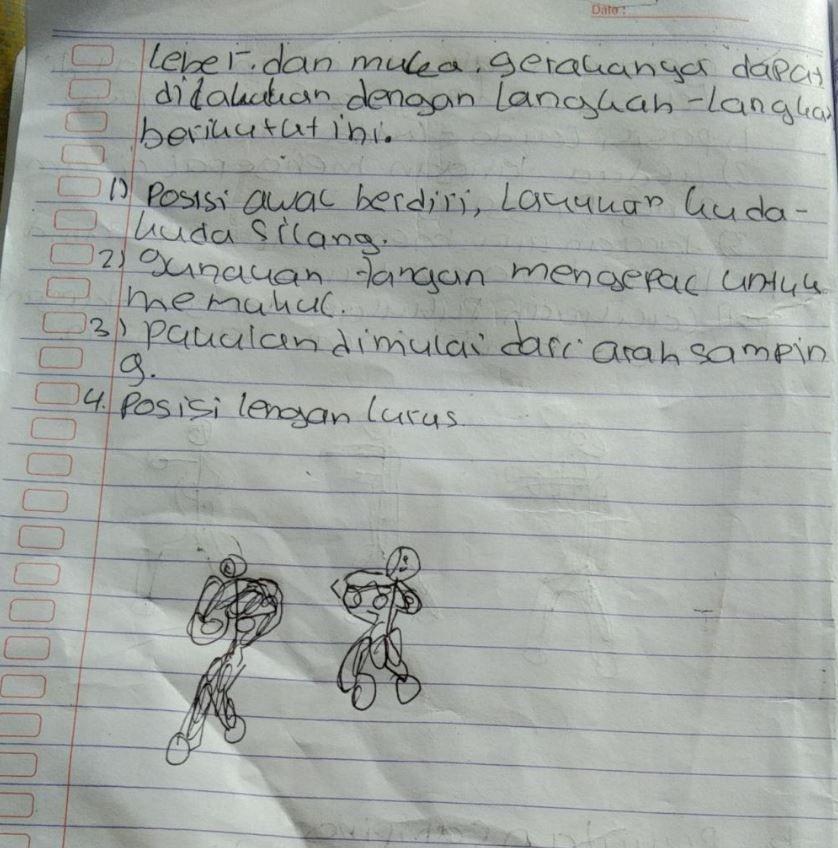 Date :
leher. dan muka. gerakanya dapat
dilakukan dengan langkah-langka
berikutut ini.
1) Posisi awal berdiri, Lakukan kuda-
kuda silang.
2) gunakan tangan mengepal untuk
memukul.
3) Pukulan dimulai dari arah sampin
g.
4. Posisi lengan lurus